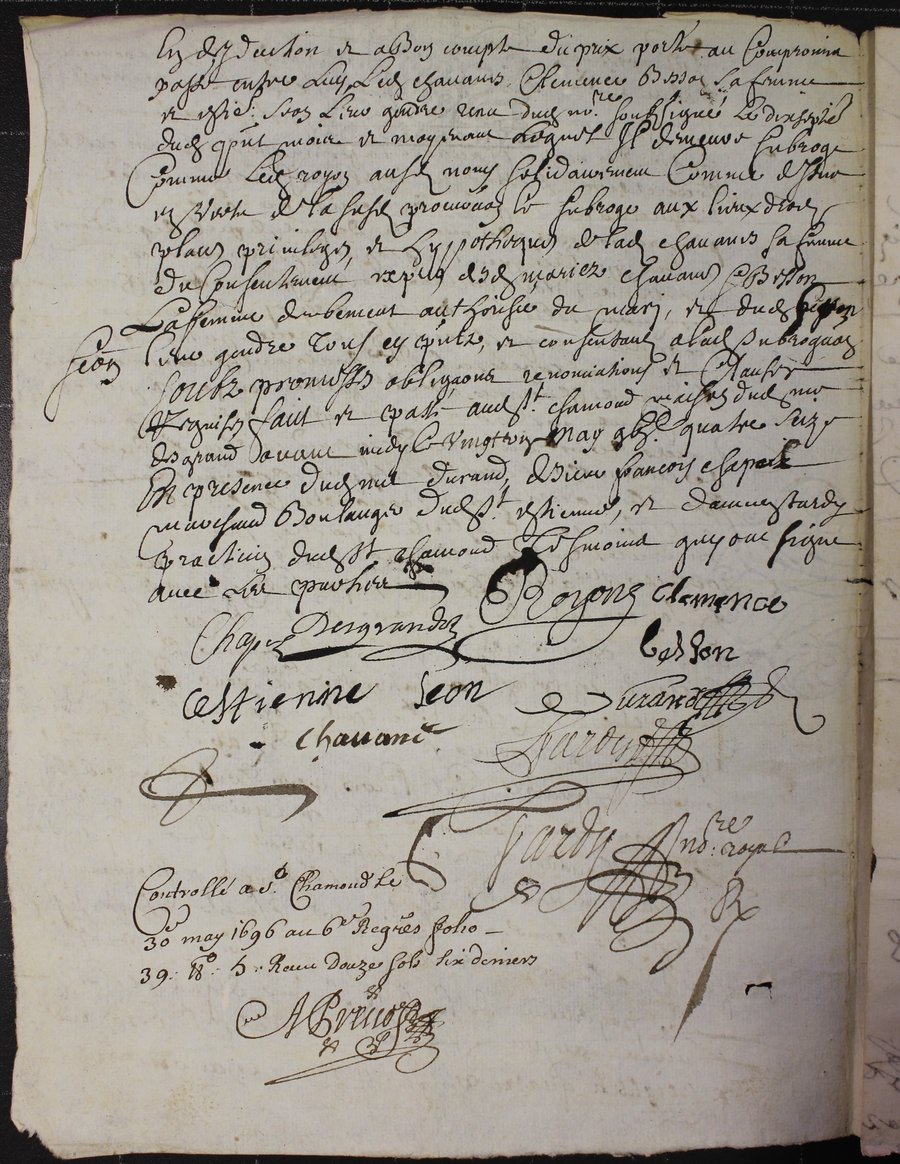 En deduction et a bon compte du prix porté au Compromis
passé entre luy Led chauanis Clemence Besson sa femme
et estie: Jeon Leur gendre receu dud no.re soussigné Le dixseptie
dud pnt mois et moyenant Lequel Il demeure subrogé
Comme Led royon aud nom solidairement Comme dessus
en vertu de lad procuraon Le subroge aux lieux droits
places priuileges et hypotheques de lad chauanis sa femme
du Consentement expres desd mariez chauanis et Besson
Lafemme deubement authorisée du mary, et dud estien
Jeon
leur gendre tous icy pntz, et consentans a lad subrogaon
soubz promesses obligaons renonciations et Clauses
requises fait et passé aud St. chamond maison dud me
desgrand auant midy le vingt may gbi.c quatre seize
En presence dud me durand, de sieur francois chapuis
marchand Boulanger dud St. estienne, et dam tardy
practicien dud St chamond tesmoins quy ont signé
auec Les parties
Royon Clemence
Chapuis Desgrandz
besson
estienne Jeon
Durand
Chauanis
Tardy
Tardy no:re royal
R
Controllé a St Chamond le
30e may 1696 au 6e Regres folio
39: Receu Douze sols six deniers
APreuost